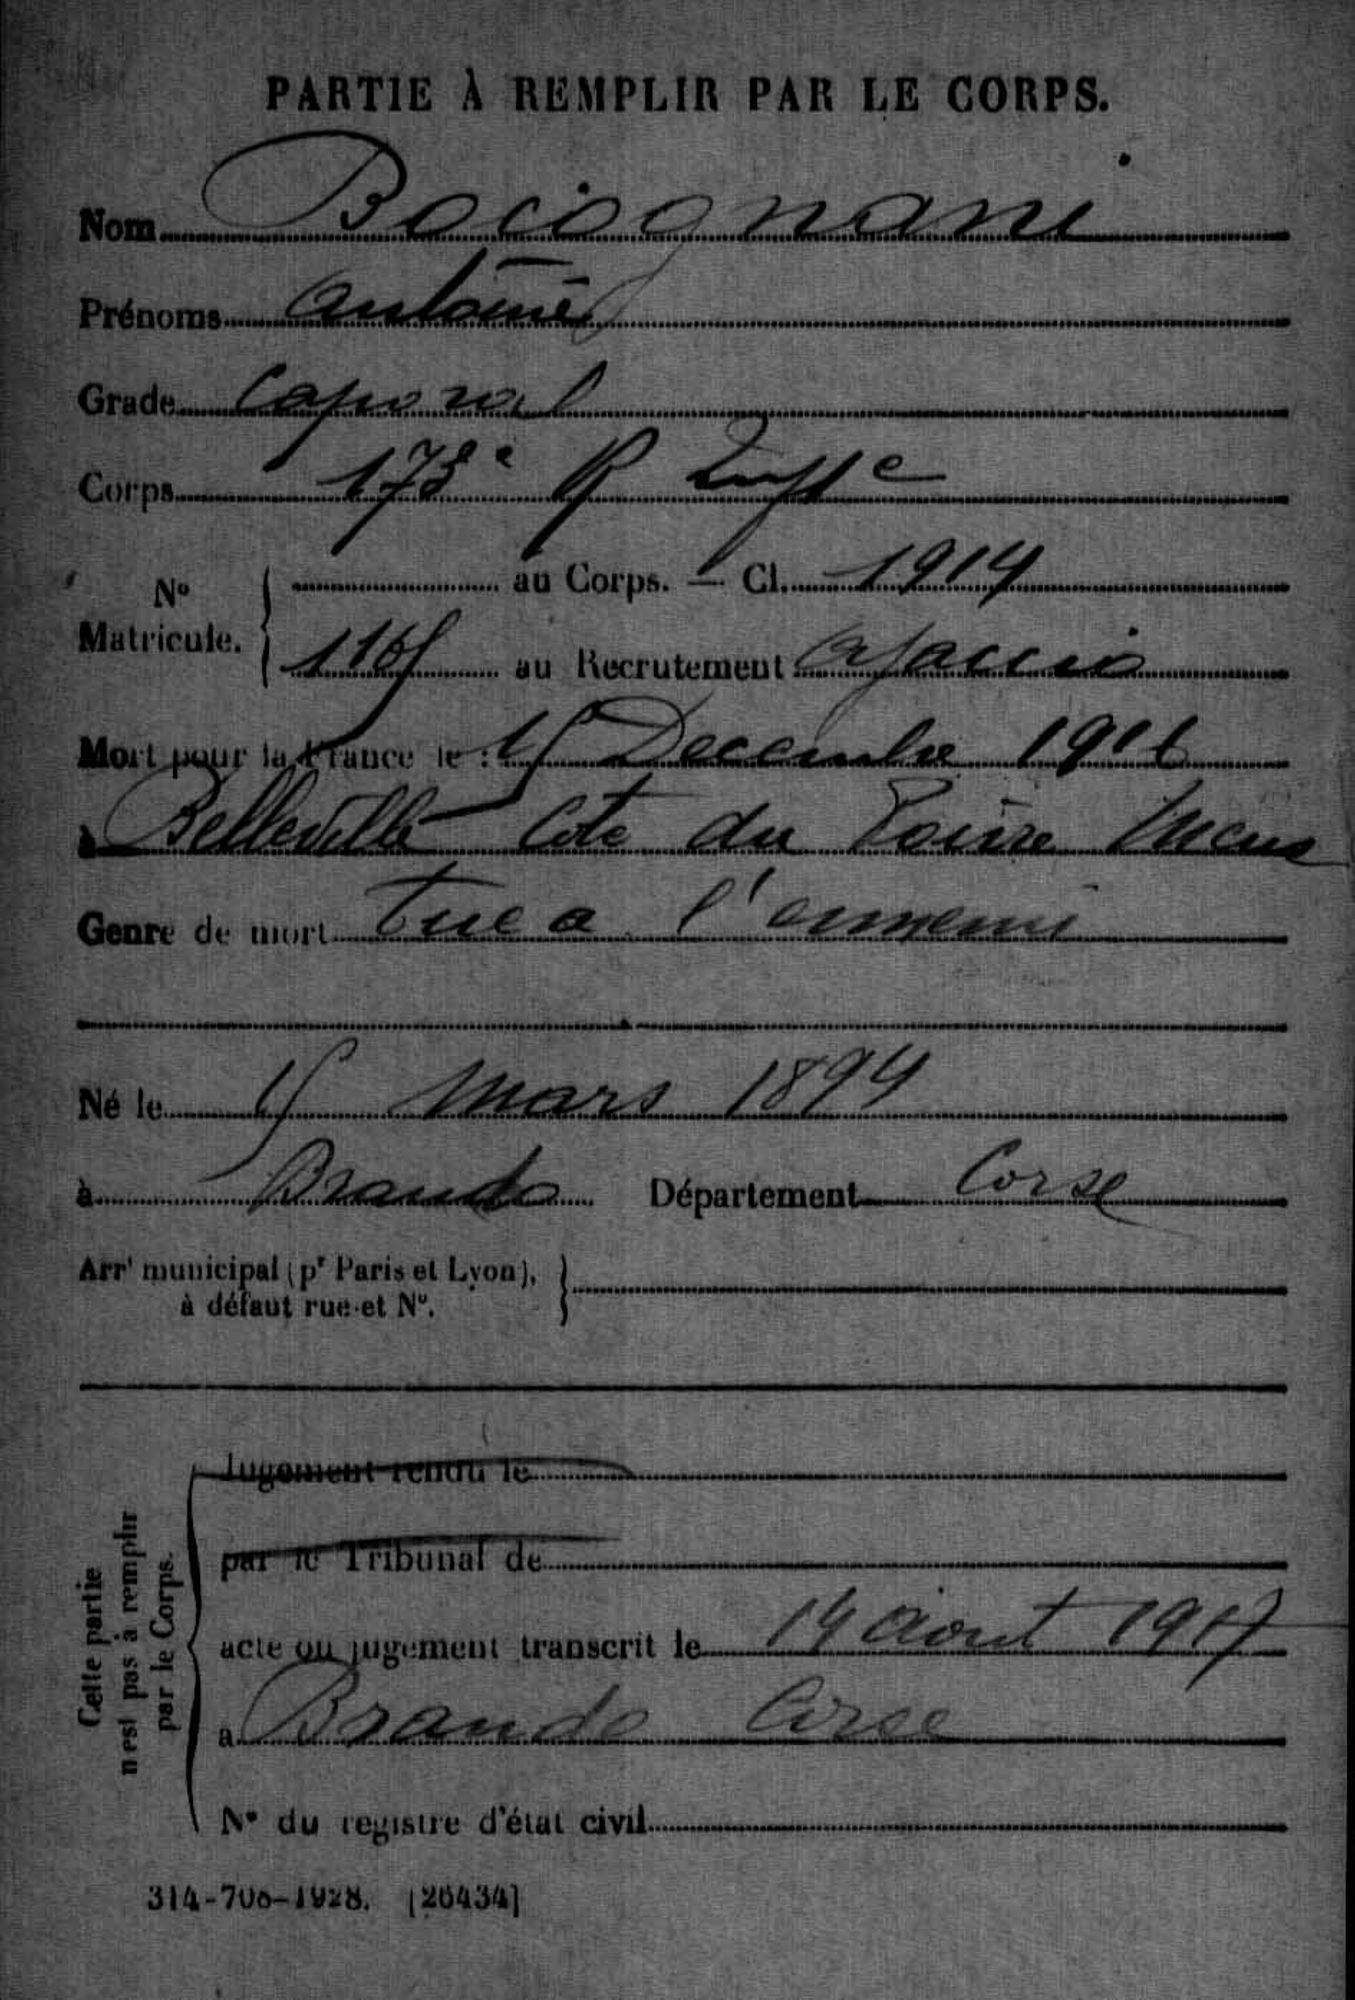 PARTIE À REMPLIR PAR LE CORPS.
Nom Bocognani
Prénoms Antoine
Grade Caporal
Corps 173e R Inf1e
No Matricule. au Corps. — Cl. 1914
1165 au Recrutement Ajaccio
Mort pour la France le : 15 Decembre 1916
à Belleville Cote du Poivre Meus
Genre de mort Tue a l'ennemi
Né le 15 Mars 1894
à Brando Département Corse
Arrt municipal (pr Paris et Lyon),
à défaut rue et No.
Jugement rendu le
par le Tribunal de
acte ou jugement transcrit le 14 Aout 1917
à Brando Corse
No du registre d'état civil
Cette partie
n'est pas à remplir
par le Corps.
314-708-1928. [26434]